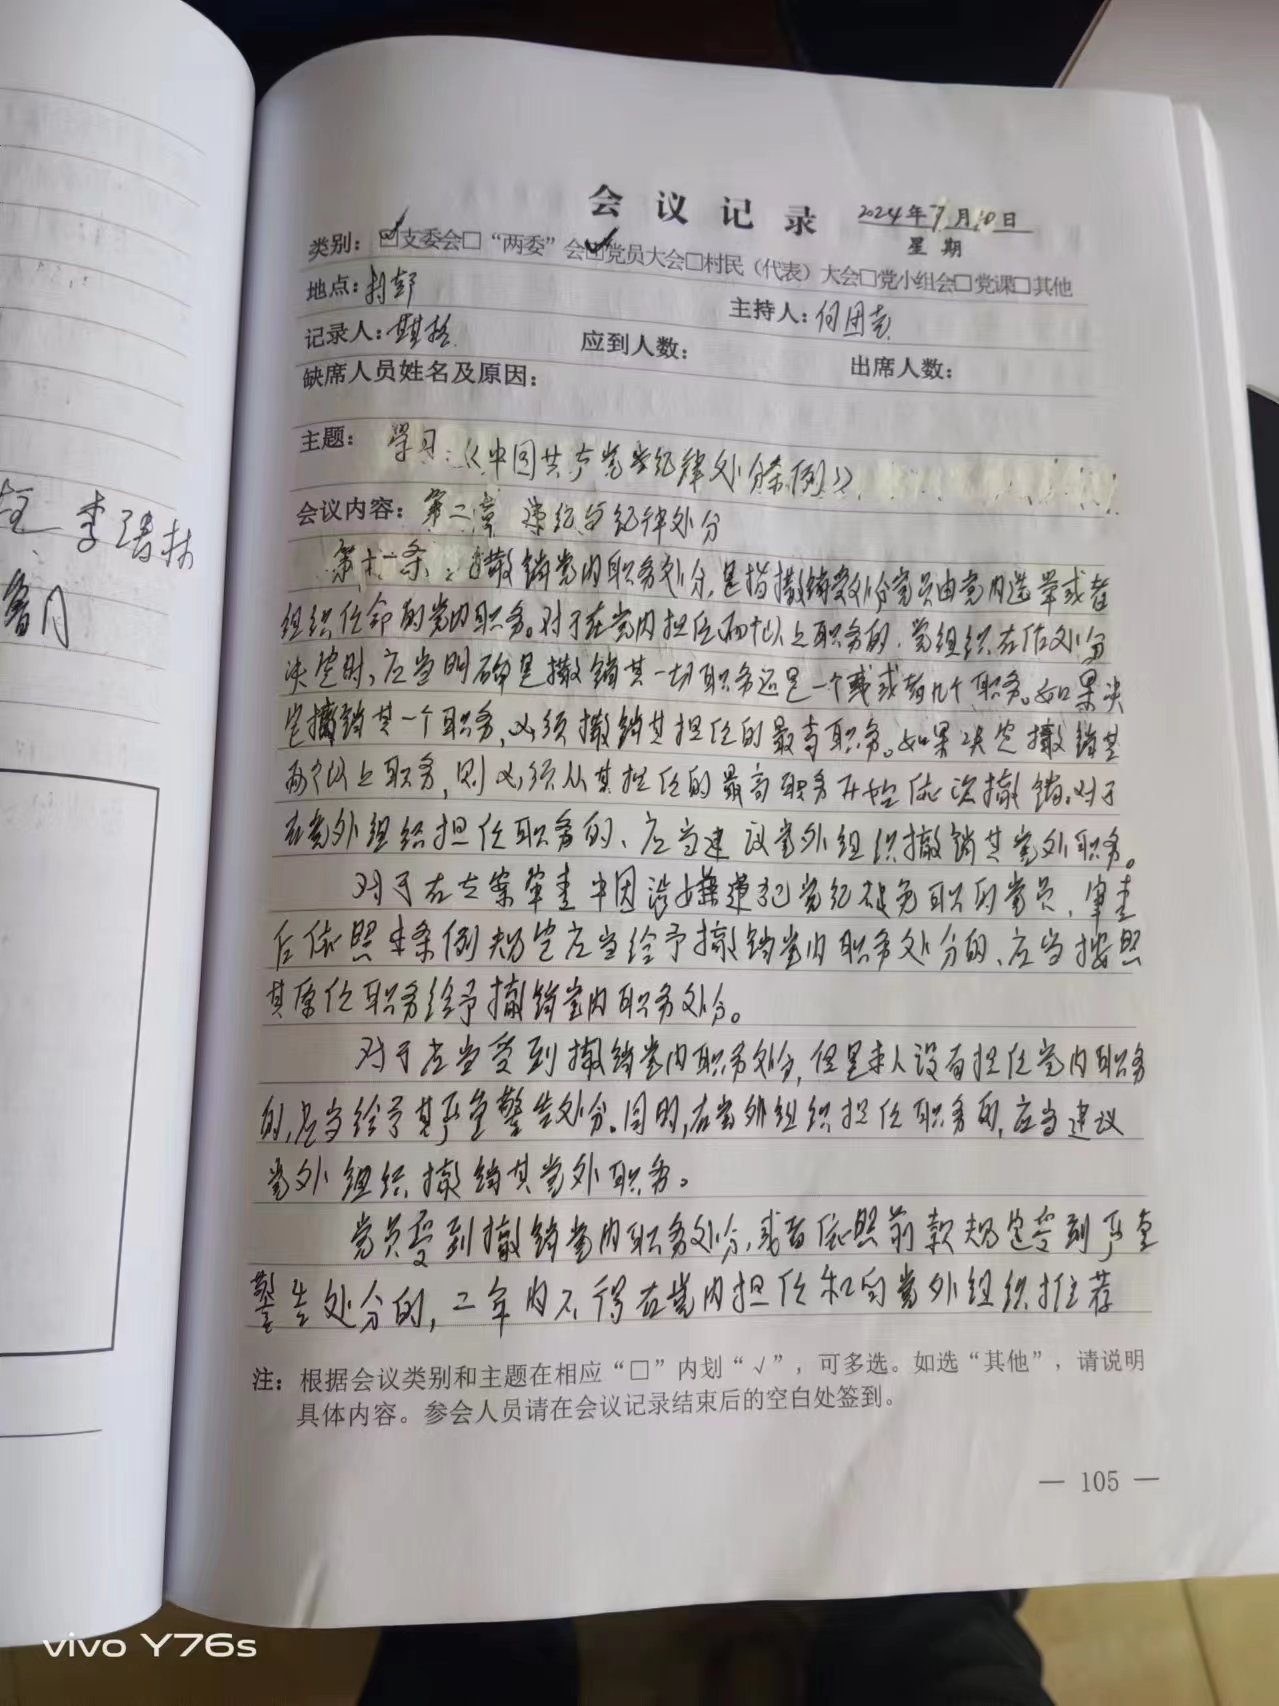 李
会议记录 2024年7月10日
星期
类别：☑支委会□“两委”会☑党员大会□村民（代表）大会□党小组会□党课□其他
地点：村部
主持人：何团
记录人： 应到人数： 出席人数：
缺席人员姓名及原因：
主题： 学习：《中国共产党党纪律处分条例》
会议内容：第二章 违纪与纪律处分
第十一条：撤销党内职务处分，是指撤销受处分党员由党内选举或者
组织任命的党内职务。对于在党内担任两个以上职务的，党组织在作处分
决定时，应当明确是撤销其一切职务还是一个或者几个职务。如果决
定撤销其一个职务，必须撤销其担任的最高职务。如果决定撤销其
两个以上职务，则必须从其担任的最高职务开始依次撤销。对于
在党外组织担任职务的，应当建议党外组织撤销其党外职务。
对于在立案审查中因涉嫌违犯党纪被免职的党员，审查
后依照本条例规定应当给予撤销党内职务处分的，应当按照
其原任职务给予撤销党内职务处分。
对于应当受到撤销党内职务处分，但是本人没有担任党内职务
的，应当给予其严重警告处分。同时，在党外组织担任职务的，应当建议
党外组织撤销其党外职务。
党员受到撤销党内职务处分，或者依照前款规定受到严重
警告处分的，二年内不得在党内担任和向党外组织推荐
注：根据会议类别和主题在相应“□”内划“√”，可多选。如选“其他”，请说明
具体内容。参会人员请在会议记录结束后的空白处签到。
— 105 —
vivo Y76s